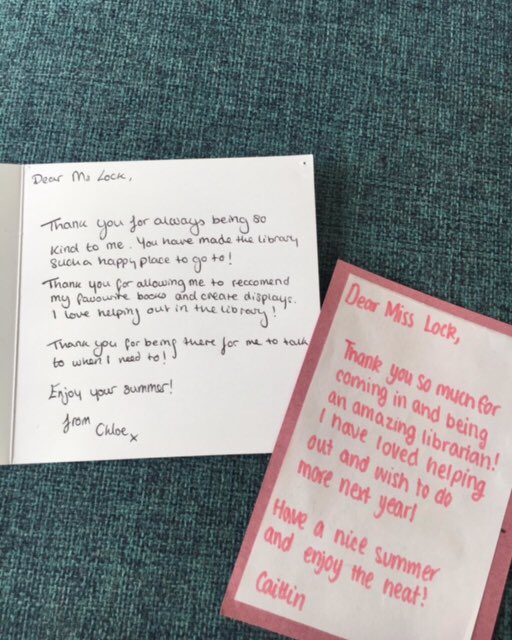 Dear Ms Lock,
Thank you for always being so
kind to me. You have made the library
such a happy place to go to!
Thank you for allowing me to reccomend
my favourite books and create displays.
I love helping out in the library!
Thank you for being there for me to talk
to when I need to!
Enjoy your summer!
from
Chloe x
Dear Miss Lock,
Thank you so much for
coming in and being
an amazing librarian!
I have loved helping
out and wish to do
more next year!
Have a nice summer
and enjoy the heat!
Caitlin